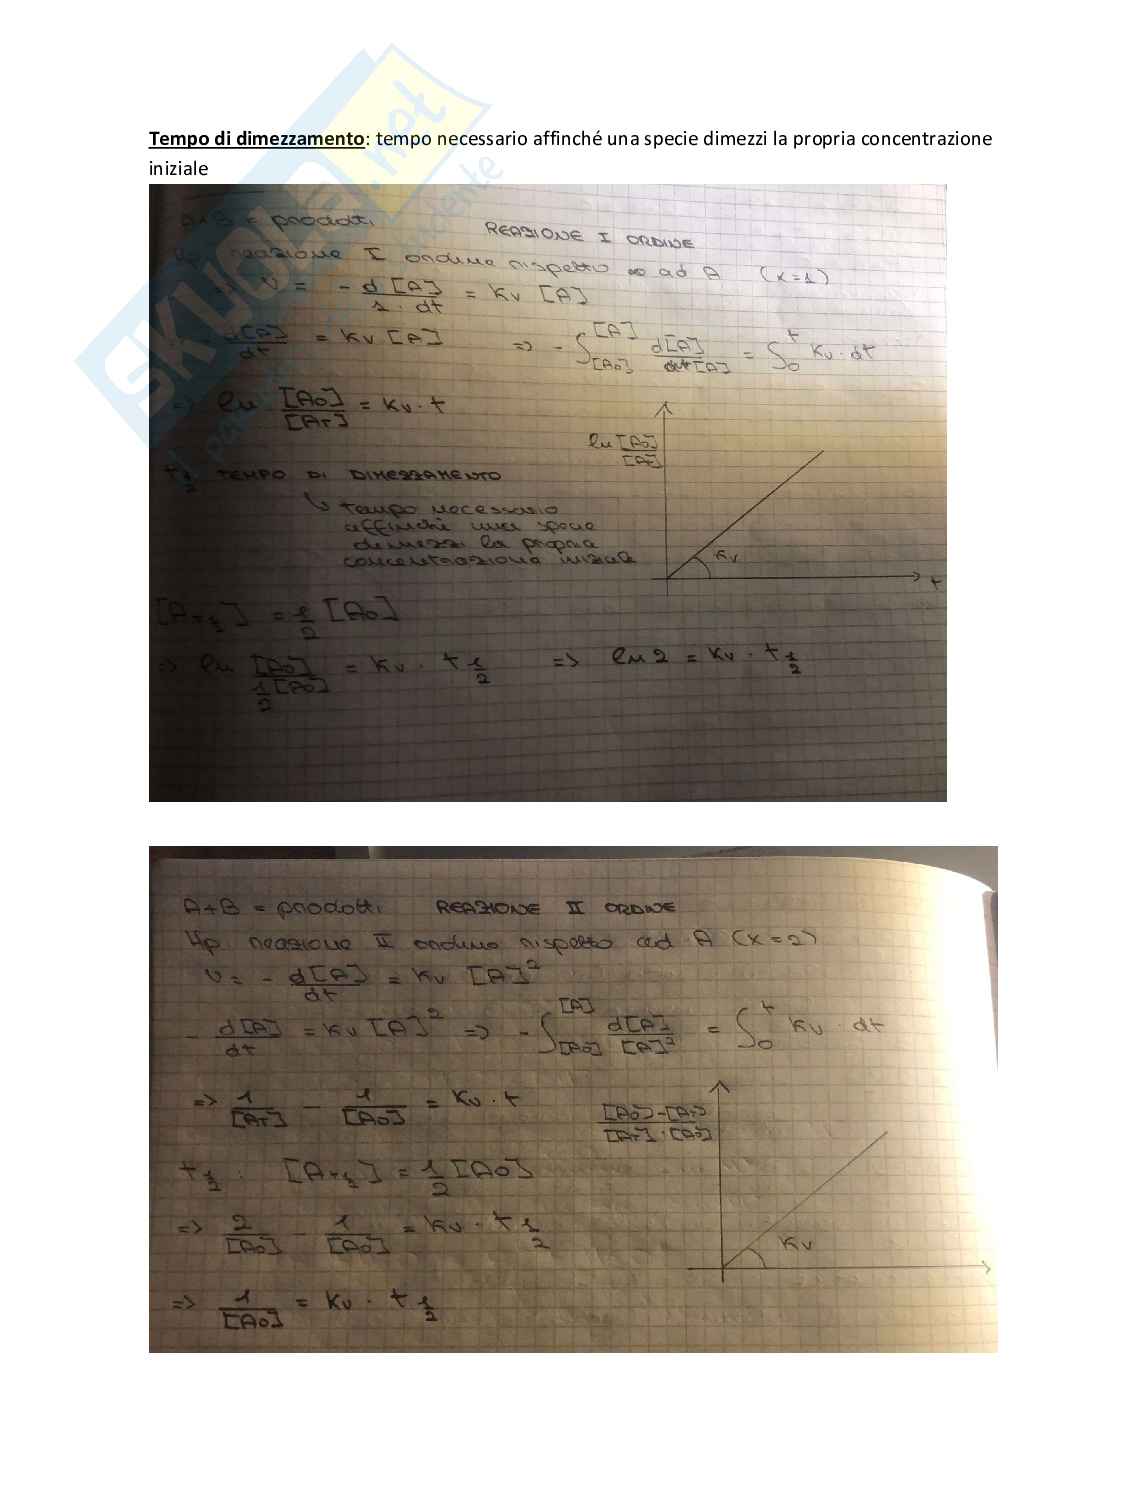 Tempo di dimezzamento: tempo necessario affinché una specie dimezzi la propria concentrazione
iniziale
SKUOLA.net
A+B = prodotti REAZIONE I ORDINE
reazione I ordine rispetto ad A (x=1)
=> v = - d[A] / 1·dt = Kv [A]
d[A]/dt = Kv [A] => - ∫[A0][A] d[A]/[A] = ∫0t Kv·dt
=> ln [A0]/[AT] = Kv·t
ln [A0]/[At]
t1/2 TEMPO DI DIMEZZAMENTO
↳ tempo necessario
affinché una specie
dimezzi la propria
concentrazione iniziale
Kv
t
[At1/2] = 1/2 [A0]
=> ln [A0] / 1/2[A0] = Kv · t1/2 => ln 2 = Kv · t1/2
A+B = prodotti REAZIONE II ORDINE
Hp. reazione II ordine rispetto ad A (x=2)
v = - d[A]/dt = Kv [A]²
- d[A]/dt = Kv [A]² => - ∫[A0][A] d[A]/[A]² = ∫0t Kv · dt
=> 1/[AT] - 1/[A0] = Kv · t
[A0]-[AT] / [AT]·[A0]
t1/2 : [At1/2] = 1/2 [A0]
=> 2/[A0] - 1/[A0] = Kv · t1/2
Kv
=> 1/[A0] = Kv · t1/2